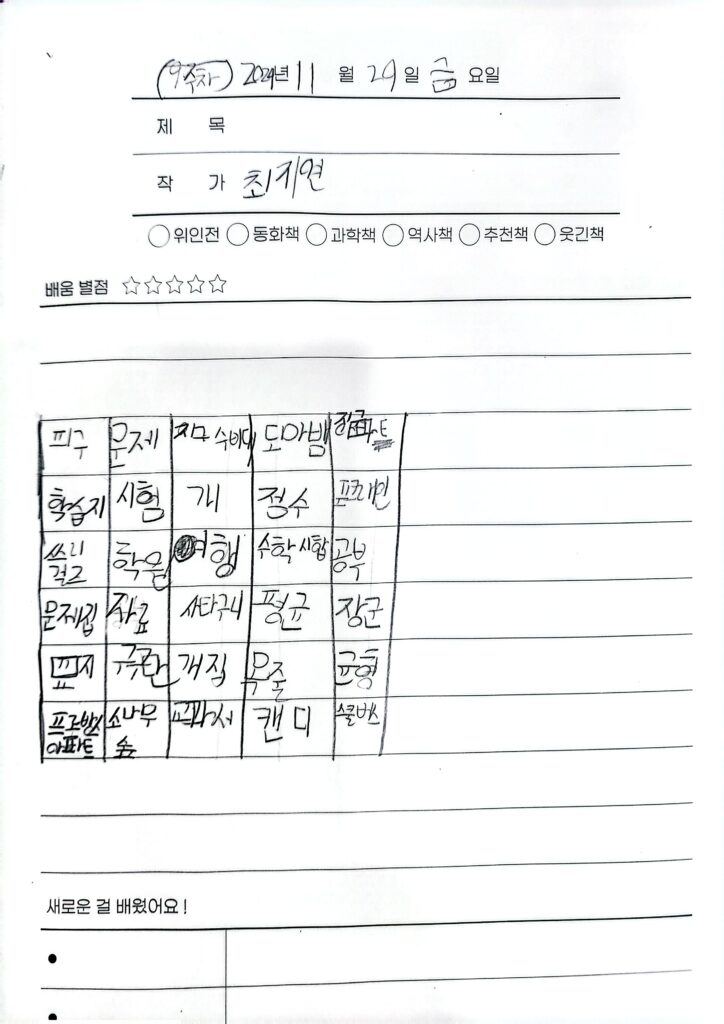 (9주차) 2024년 11 월 29 일 금 요일
제 목
작 가 최지연
위인전 동화책 과학책 역사책 추천책 웃긴책
배움 별점 ☆☆☆☆☆
피구 문제 지구 수비대 도마뱀
학습지 시험 개 점수
쓰리 걸즈 학원 여행 수학 시합 공부
문제집 자료 사타구니 평균 장군
표지 개집 우줄 균형
아파트 소나무 숲 교과서 캔디 스쿨버스
새로운 걸 배웠어요 !